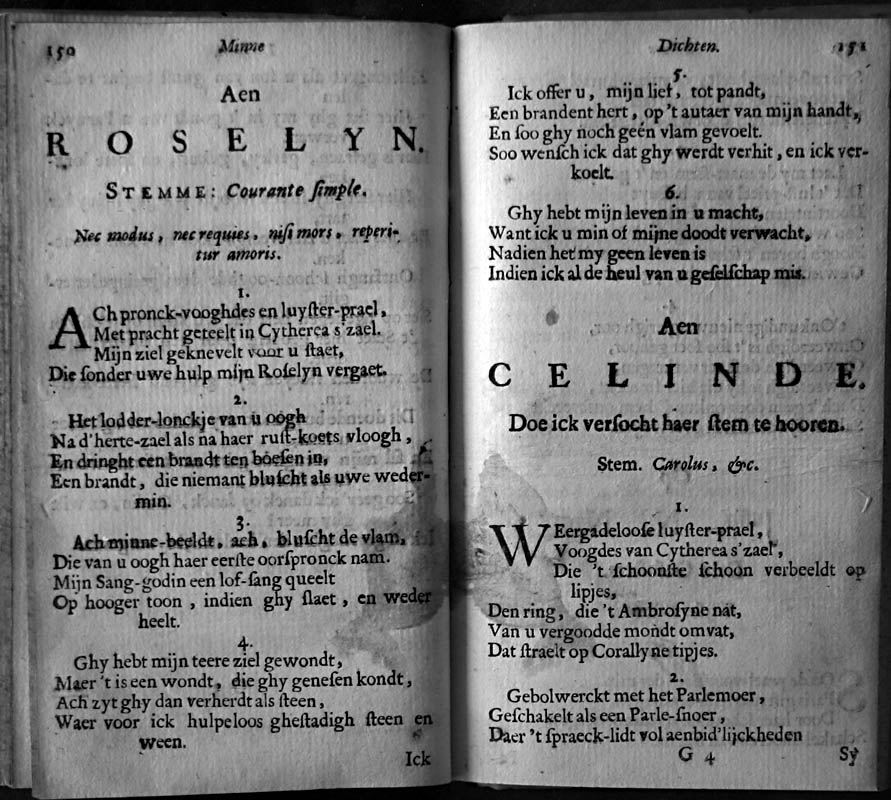 150 Minne
Aen
ROSELYN.
STEMME: Courante ſimple.
Nec modus, nec requies, niſi mors, reperi-
tur amoris.
1.
ACh pronck-vooghdes en luyſter-prael,
Met pracht geteelt in Cytherea s'zael.
Mijn ziel geknevelt voor u ſtaet,
Die ſonder uwe hulp mijn Roſelyn vergaet.
2.
Het lodder-lonckje van u oogh
Na d'herte-zael als na haer ruſt-koets vloogh,
En dringht een brandt ten boeſen in,
Een brandt, die niemant bluſcht als uwe weder-
min.
3.
Ach minne-beeldt, ach, bluſcht de vlam,
Die van u oogh haer eerſte oorſpronck nam.
Mijn Sang-godin een lof-ſang queelt
Op hooger toon, indien ghy ſlaet, en weder
heelt.
4.
Ghy hebt mijn teere ziel gewondt,
Maer 't is een wondt, die ghy geneſen kondt,
Ach zyt ghy dan verherdt als ſteen,
Waer voor ick hulpeloos gheſtadigh ſteen en
ween.
Ick
Dichten. 151
5.
Ick offer u, mijn lief, tot pandt,
Een brandent hert, op 't autaer van mijn handt,
En ſoo ghy noch geen vlam gevoelt.
Soo wenſch ick dat ghy werdt verhit, en ick ver-
koelt.
6.
Ghy hebt mijn leven in u macht,
Want ick u min of mijne doodt verwacht,
Nadien het my geen leven is
Indien ick al de heul van u geſelſchap mis.
Aen
CELINDE.
Doe ick verſocht haer ſtem te hooren.
Stem. Carolus, &c.
1.
WEergadelooſe luyſter-prael,
Voogdes van Cytherea s'zael,
Die 't ſchoonſte ſchoon verbeeldt op
lipjes,
Den ring, die 't Ambroſyne nat,
Van u vergoodde mondt omvat,
Dat ſtraelt op Corallyne tipjes.
2.
Gebolwerckt met het Parlemoer,
Geſchakelt als een Parle-ſnoer,
Daer 't ſpraeck-lidt vol aenbid'lijckheden
G 4 Sy